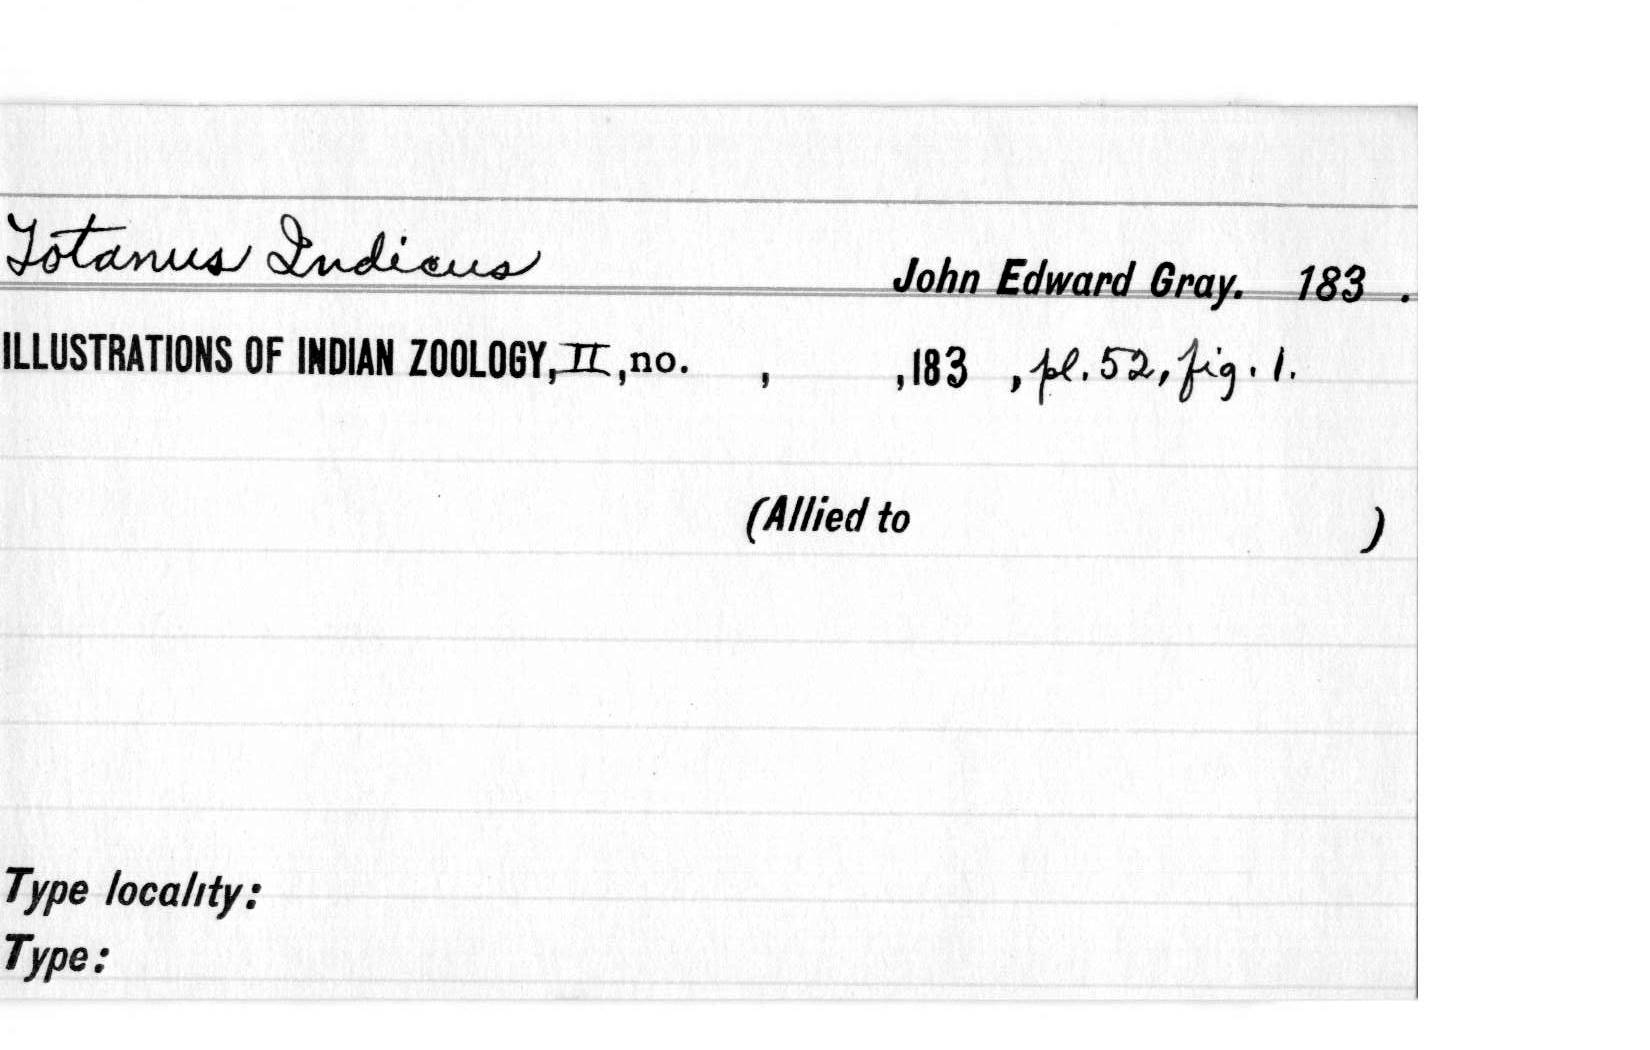 Totanus Indicus John Edward Gray. 183 .
ILLUSTRATIONS OF INDIAN ZOOLOGY, II, no. , ,183 , pl. 52, fig. 1.
(Allied to )
Type locality:
Type: